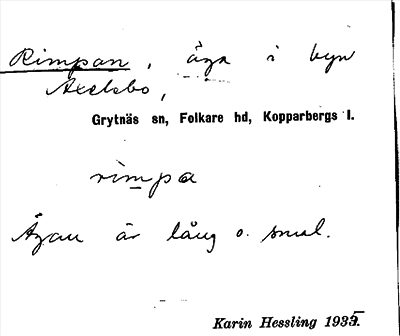 Rimpan, äga i byn
Axelsbo,
Grytnäs sn, Folkare hd, Kopparbergs l.
rimpa
Ägan är lång o. smal.
Karin Hessling 1935.